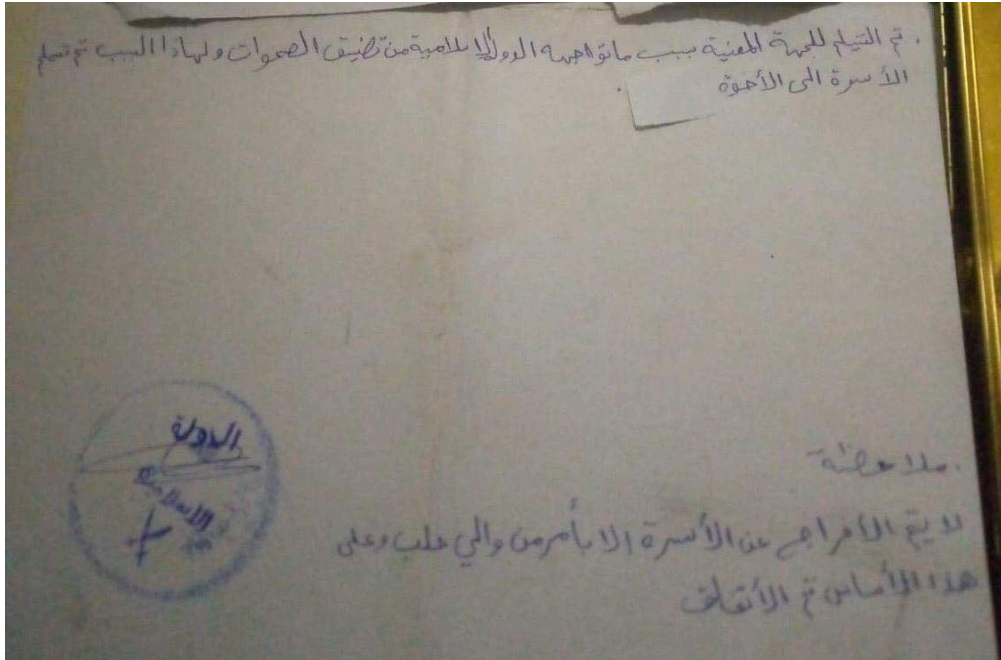 . تم التتيلم للجهة المعنية بسبب ماتواجهه الدولة الإسلامية من تضيق الصحوات ولهاذا السبب تم تسلم
الأسرة الى الأخوة
الدولة
الاسلامية
. ملاحضة
لا يتم الأفراج عن الأسرة إلا بأمر من والي حلب وعلى
هذا الأساس تم الأتفاق